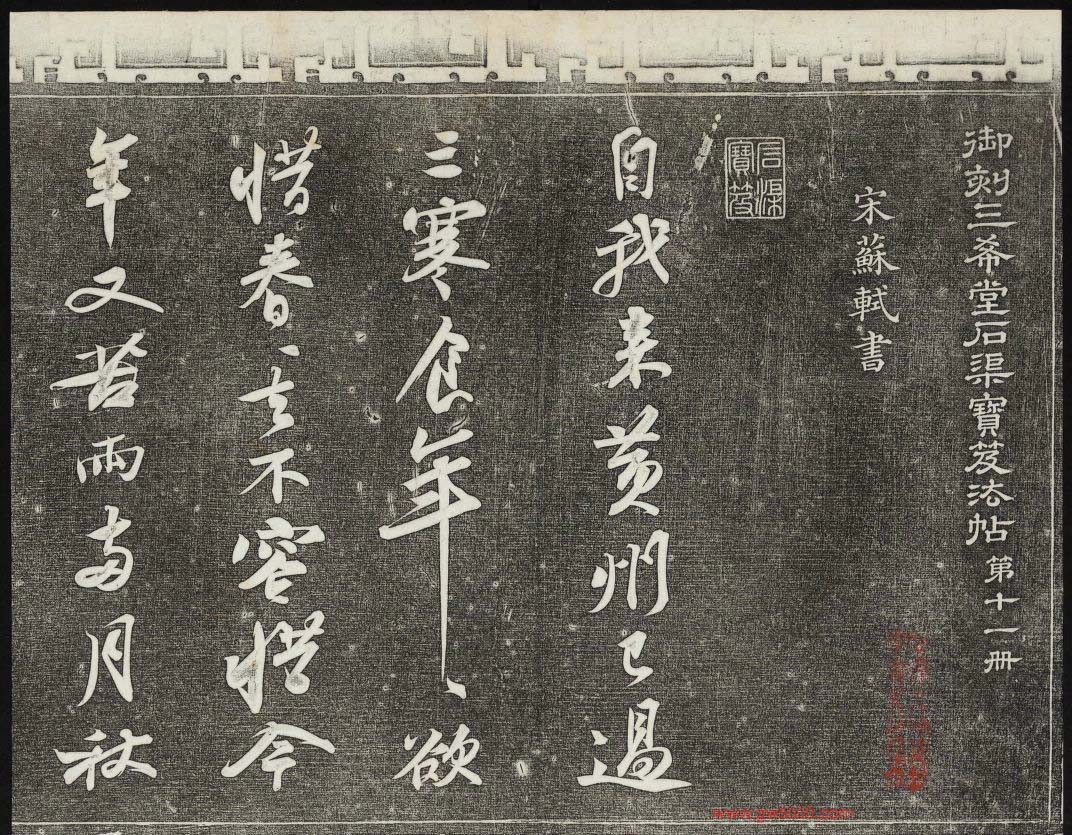 御刻三希堂石渠寶笈法帖 第十一冊
宋蘇軾書
石渠寶笈
自我来黄州已過
三寒食年〻欲
惜春〻去不容惜今
年又苦雨兩月秋
www.gw5000.com